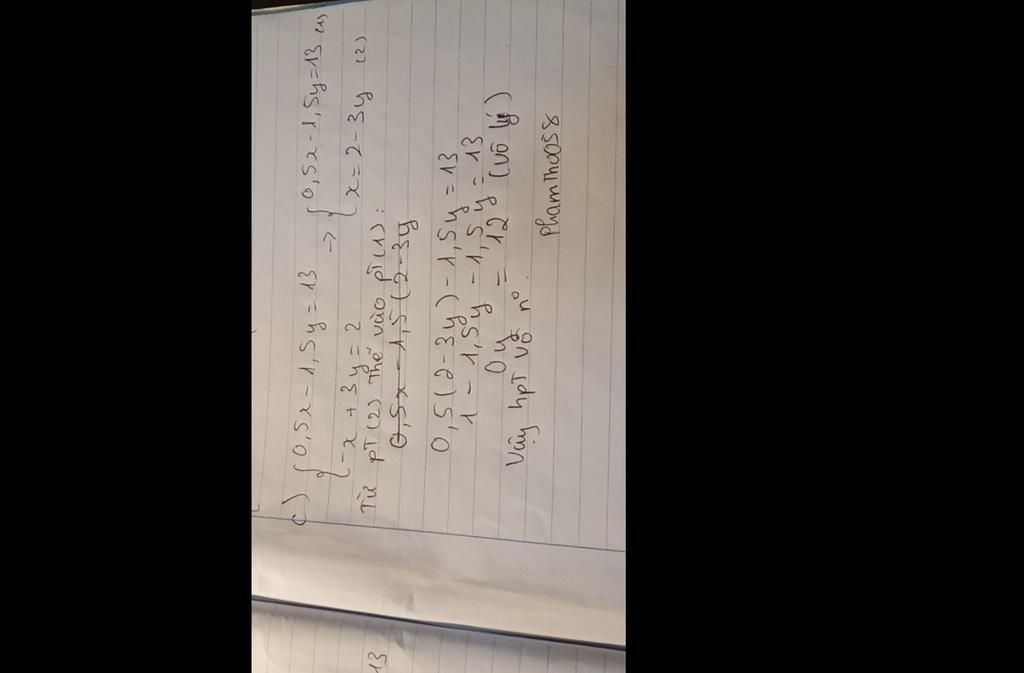 c) { 0,5x - 1,5y = 13 → { 0,5x - 1,5y = 13 (1)
{ -x + 3y = 2 { x = 2 - 3y (2)
Từ pT (2) thế vào pT (1):
0,5x - 1,5(2 - 3y
0,5(2 - 3y) - 1,5y = 13
1 - 1,5y - 1,5y = 13
0y = 12 (vô lý)
Vậy hpT vô n°.
phamthao058
13